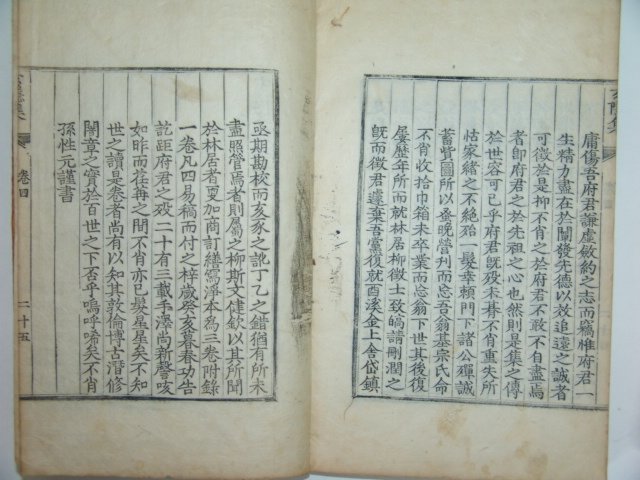 庸傷吾府君謙虛斂約之志而竊惟府君一
生精力盡在於闡發先德以效追遠之誠者
可徵於是抑不肖之於府君不敢不自盡焉
者卽府君之於先祖之心也然則是集之傳
於世容可已乎府君旣歿未朞不肖重失所
怙家緖之不絶殆一髮幸賴門下諸公殫誠
蓄貲圖所以叠晩營刋而忠翁基宗氏命
不肖收拾巾箱未卒業而忠翁下世其後復
屢歷年所而就林居柳徵士致皜請剛潤之
旣而徵君遽棄吾黨復就酉溪金上舍岱鎭
亟期勘校而亥豕之訛丁乙之錯猶有所未
盡照管焉者則屬之柳斯文健欽以其所聞
於林居者更加商訂繕寫淨本爲三卷附錄
一卷凡四易稿而付之梓歲癸亥暮春功告
訖距府君之歿二十有三載手澤尚新謦咳
如昨而荏苒之間不肖亦已髮星星矣不知
世之讀是卷者尚有以知其敦倫博古潛修
闇章之實於百世之下否乎嗚呼唏矣不肖
孫性元謹書
卷四
二十五